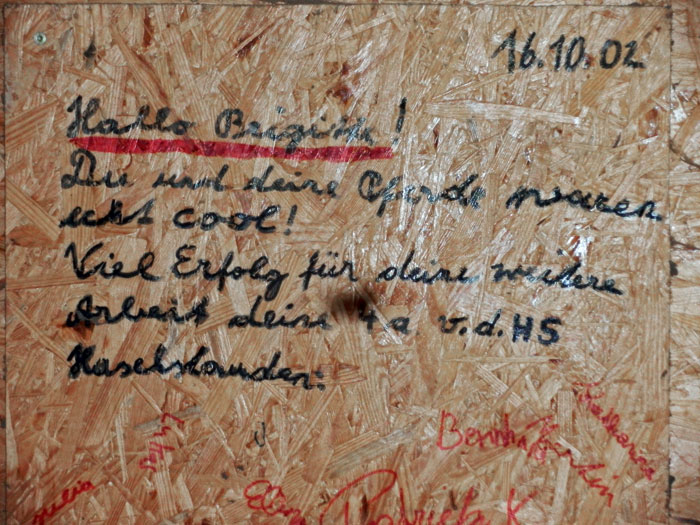 16.10.02
Hallo Brigitte!
Du und deine Pferde waren
echt cool!
Viel Erfolg für deine weitere
Arbeit deine 4a v.d. HS
Haselstauden:
Katharina
Julia
Patrick K